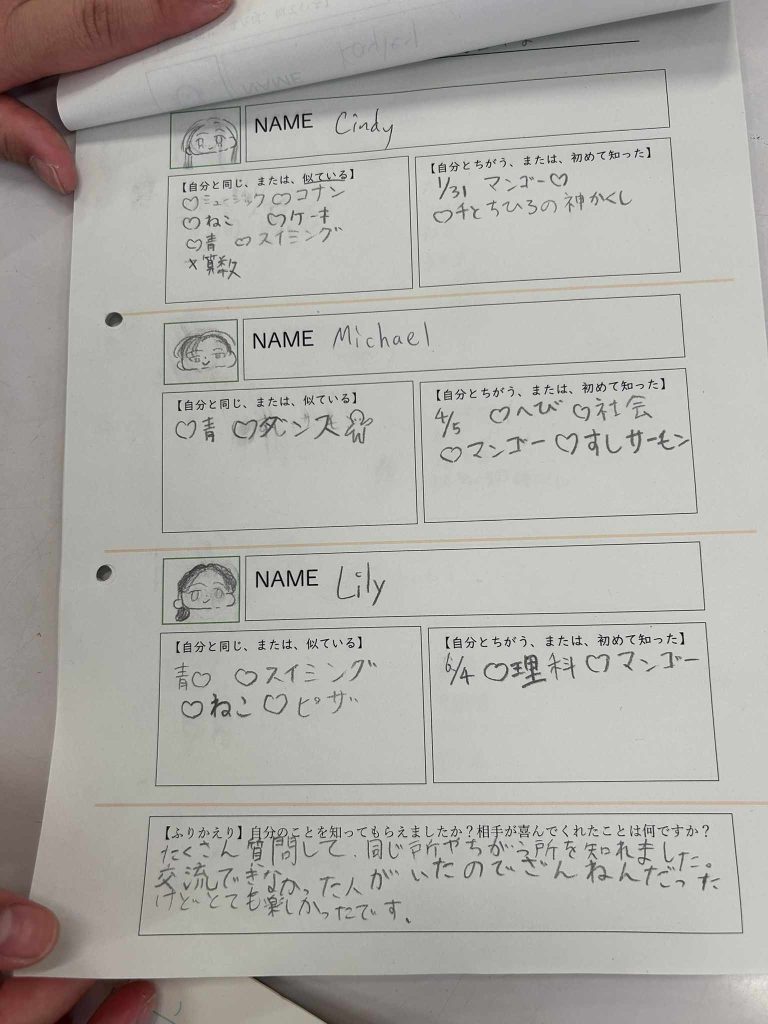 NAME Cindy
【自分と同じ、または、似ている】
♡ミュージック ♡コナン
♡ねこ ♡ケーキ
♡青 ♡スイミング
×算数
【自分とちがう、または、初めて知った】
1/31 マンゴー♡
♡千とちひろの神かくし
NAME Michael
【自分と同じ、または、似ている】
♡青 ♡ダンス
【自分とちがう、または、初めて知った】
4/5 ♡へび ♡社会
♡マンゴー ♡すしサーモン
NAME Lily
【自分と同じ、または、似ている】
青♡ ♡スイミング
♡ねこ ♡ピザ
【自分とちがう、または、初めて知った】
6/4 ♡理科 ♡マンゴー
【ふりかえり】自分のことを知ってもらえましたか？相手が喜んでくれたことは何ですか？
たくさん質問して、同じ所やちがう所を知れました。
交流できなかった人がいたのでざんねんだった
けどとても楽しかったです。